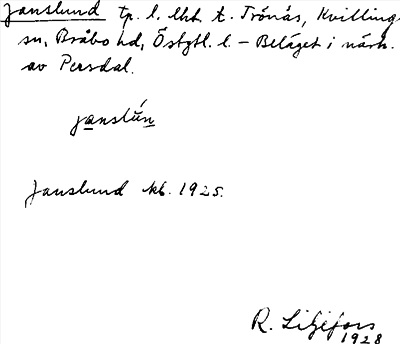 Janslund tp. l. lht t. Trönäs, Kvillinge
sn, Bråbo hd, Östgtl. l. – Beläget i närh.
av Persdal.
janslún
Janslund kb. 1925.
R. Liljefors
1928